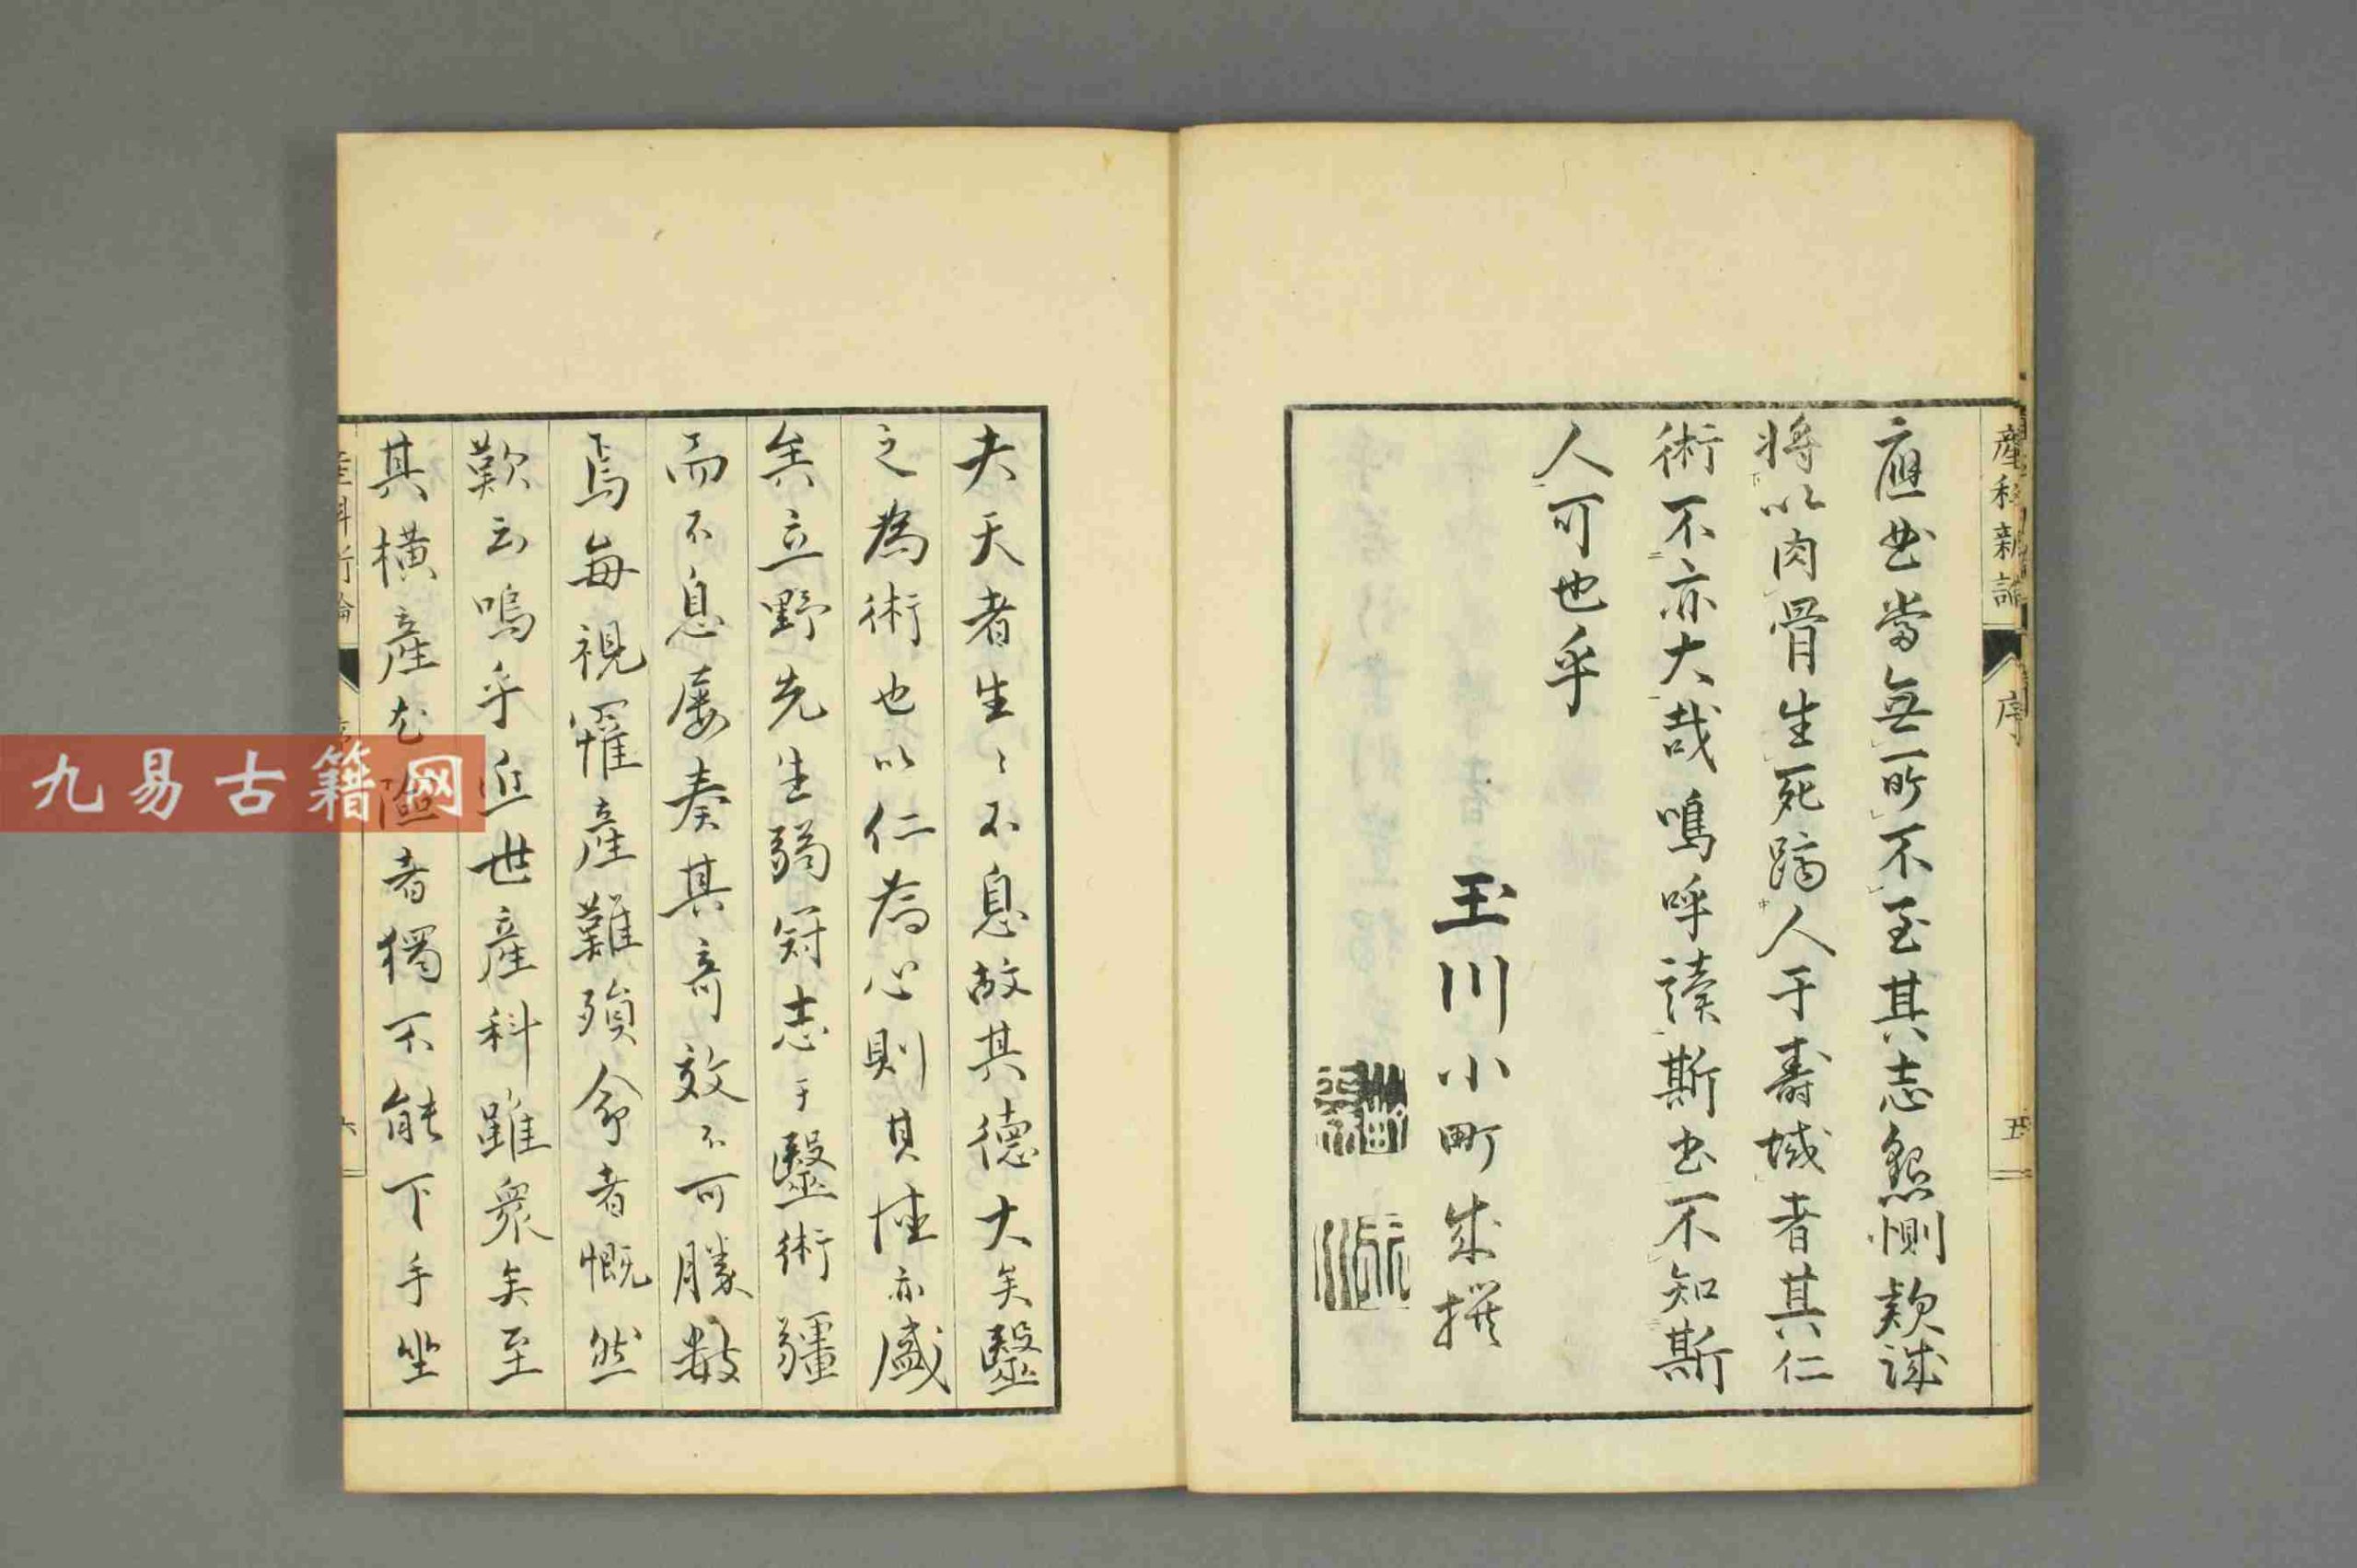 產科新論
序
五
應出當無所不至其志懇惻款誠
將以肉骨生死躋人于壽域者其仁
術不亦大哉鳴呼讀斯書不知斯
人可也乎
玉川小町撰
夫天者生〻不息故其德大矣毉
之為術也以仁為心則其德亦盛
矣立野先生弱冠志于毉術彊
而不息屢奏其奇效不可勝數
焉每視罹產難殞命者慨然
歎云嗚乎近世產科雖衆矣至
其橫產尤險者獨不能下手坐
產科新論
六
九易古籍网